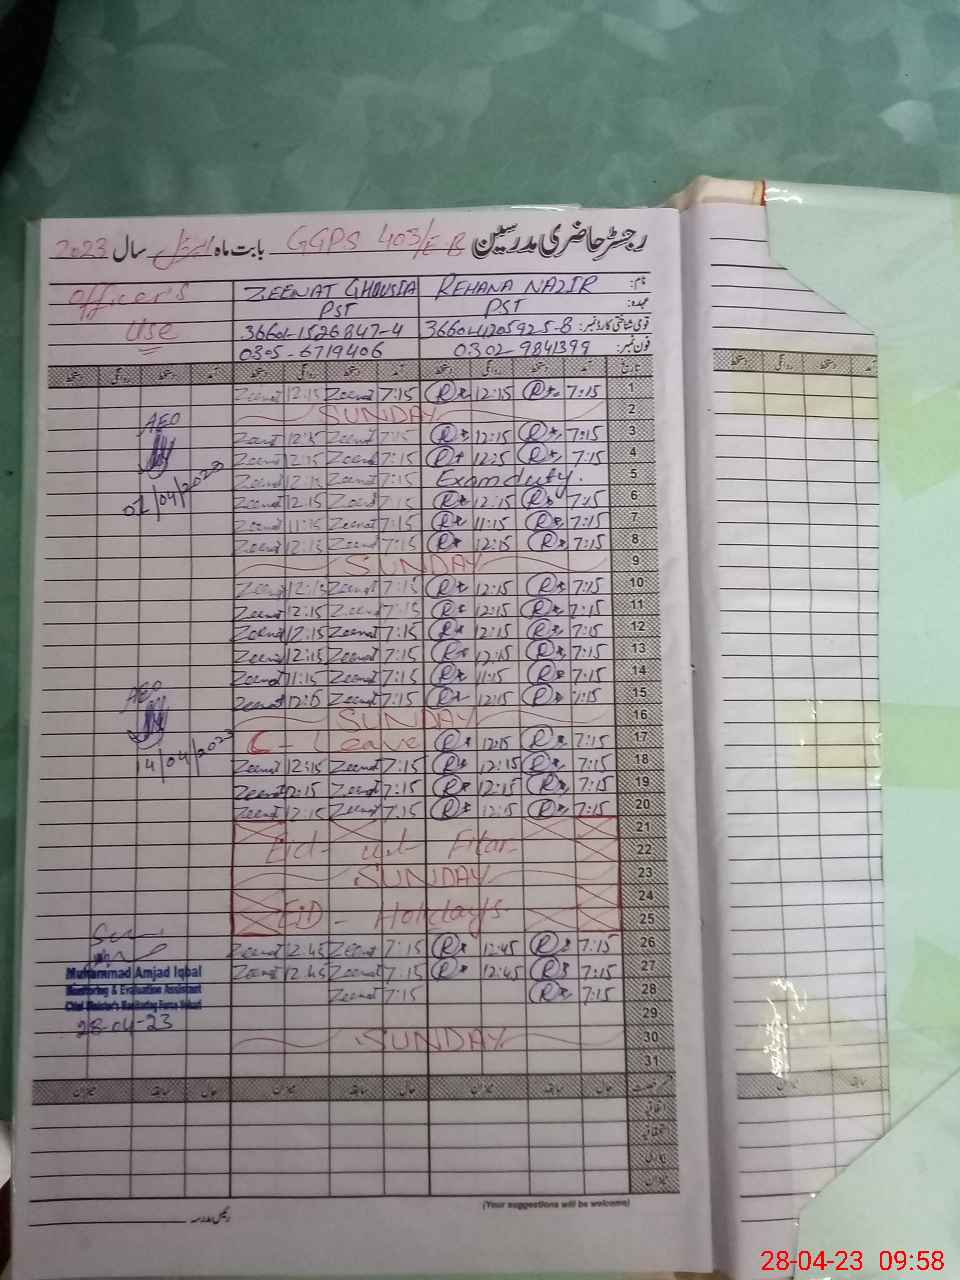 رجسٹر حاضری مدرسین GGPS 403/E-B بابت ماہ اپریل سال 2023
Officer's Use
نام: REHANA NAZIR ZEENAT GHOUSIA
عہدہ: PST PST
قومی شناختی کارڈ نمبر: 36601-1526847-4
فون نمبر: 0302-9841399 0305-6719406
تاریخ آمد دستخط روانگی دستخط آمد دستخط روانگی دستخط آمد دستخط روانگی دستخط
1 7:15 R 12:15 R 7:15 Zeenat 12:15 Zeenat
2 SUNDAY
3 7:15 R 12:15 R 7:15 Zeenat 12:15 Zeenat
4 7:15 R 12:5 R 7:15 Zeenat 12:15 Zeenat
5 Exam duty. 7:15 Zeenat 12:15 Zeenat
6 7:15 R 12:15 R 7:15 Zeenat 12:15 Zeenat
7 7:15 R 11:15 R 7:15 Zeenat 11:15 Zeenat
8 7:15 R 12:15 R 7:15 Zeenat 12:15 Zeenat
9 SUNDAY
10 7:15 R 12:15 R 7:15 Zeenat 12:15 Zeenat
11 7:15 R 12:15 R 7:15 Zeenat 12:15 Zeenat
12 7:15 R 12:15 R 7:15 Zeenat 12:15 Zeenat
13 7:15 R 12:15 R 7:15 Zeenat 12:15 Zeenat
14 7:15 R 11:15 R 7:15 Zeenat 11:15 Zeenat
15 R 12:15 R 7:15 Zeenat Zeenat
16 SUNDAY
17 7:15 R 12:15 R C - Leave
18 7:15 R 12:15 R 7:15 Zeenat 12:15 Zeenat
19 7:15 R 12:15 R 7:15 Zeenat 12:15 Zeenat
20 7:15 R 12:15 R 7:15 Zeenat 12:15 Zeenat
21
22 Eid-ul-Fitar
23 SUNDAY
24
25 EiD - Holidays
26 7:15 R 12:45 R 7:15 Zeenat 12:45 Zeenat
27 7:15 R 12:45 R 7:15 Zeenat 12:45 Zeenat
28 7:15 R 7:15 Zeenat
29
30 SUNDAY
31
AEO
07/04/2023
AEO
14/04/2023
Muhammad Amjad Iqbal
Monitoring & Evaluation Assistant
Chief Minister's Monitoring Force Vehari
28-04-23
حال سابقہ میزان حال سابقہ میزان حال سابقہ میزان
اتفاقیہ
میزان
(Your suggestions will be welcome)
رئیس مدرسہ
28-04-23 09:58